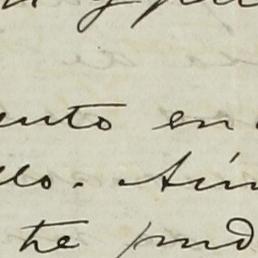 y
ento en
lo. Aún
te pud